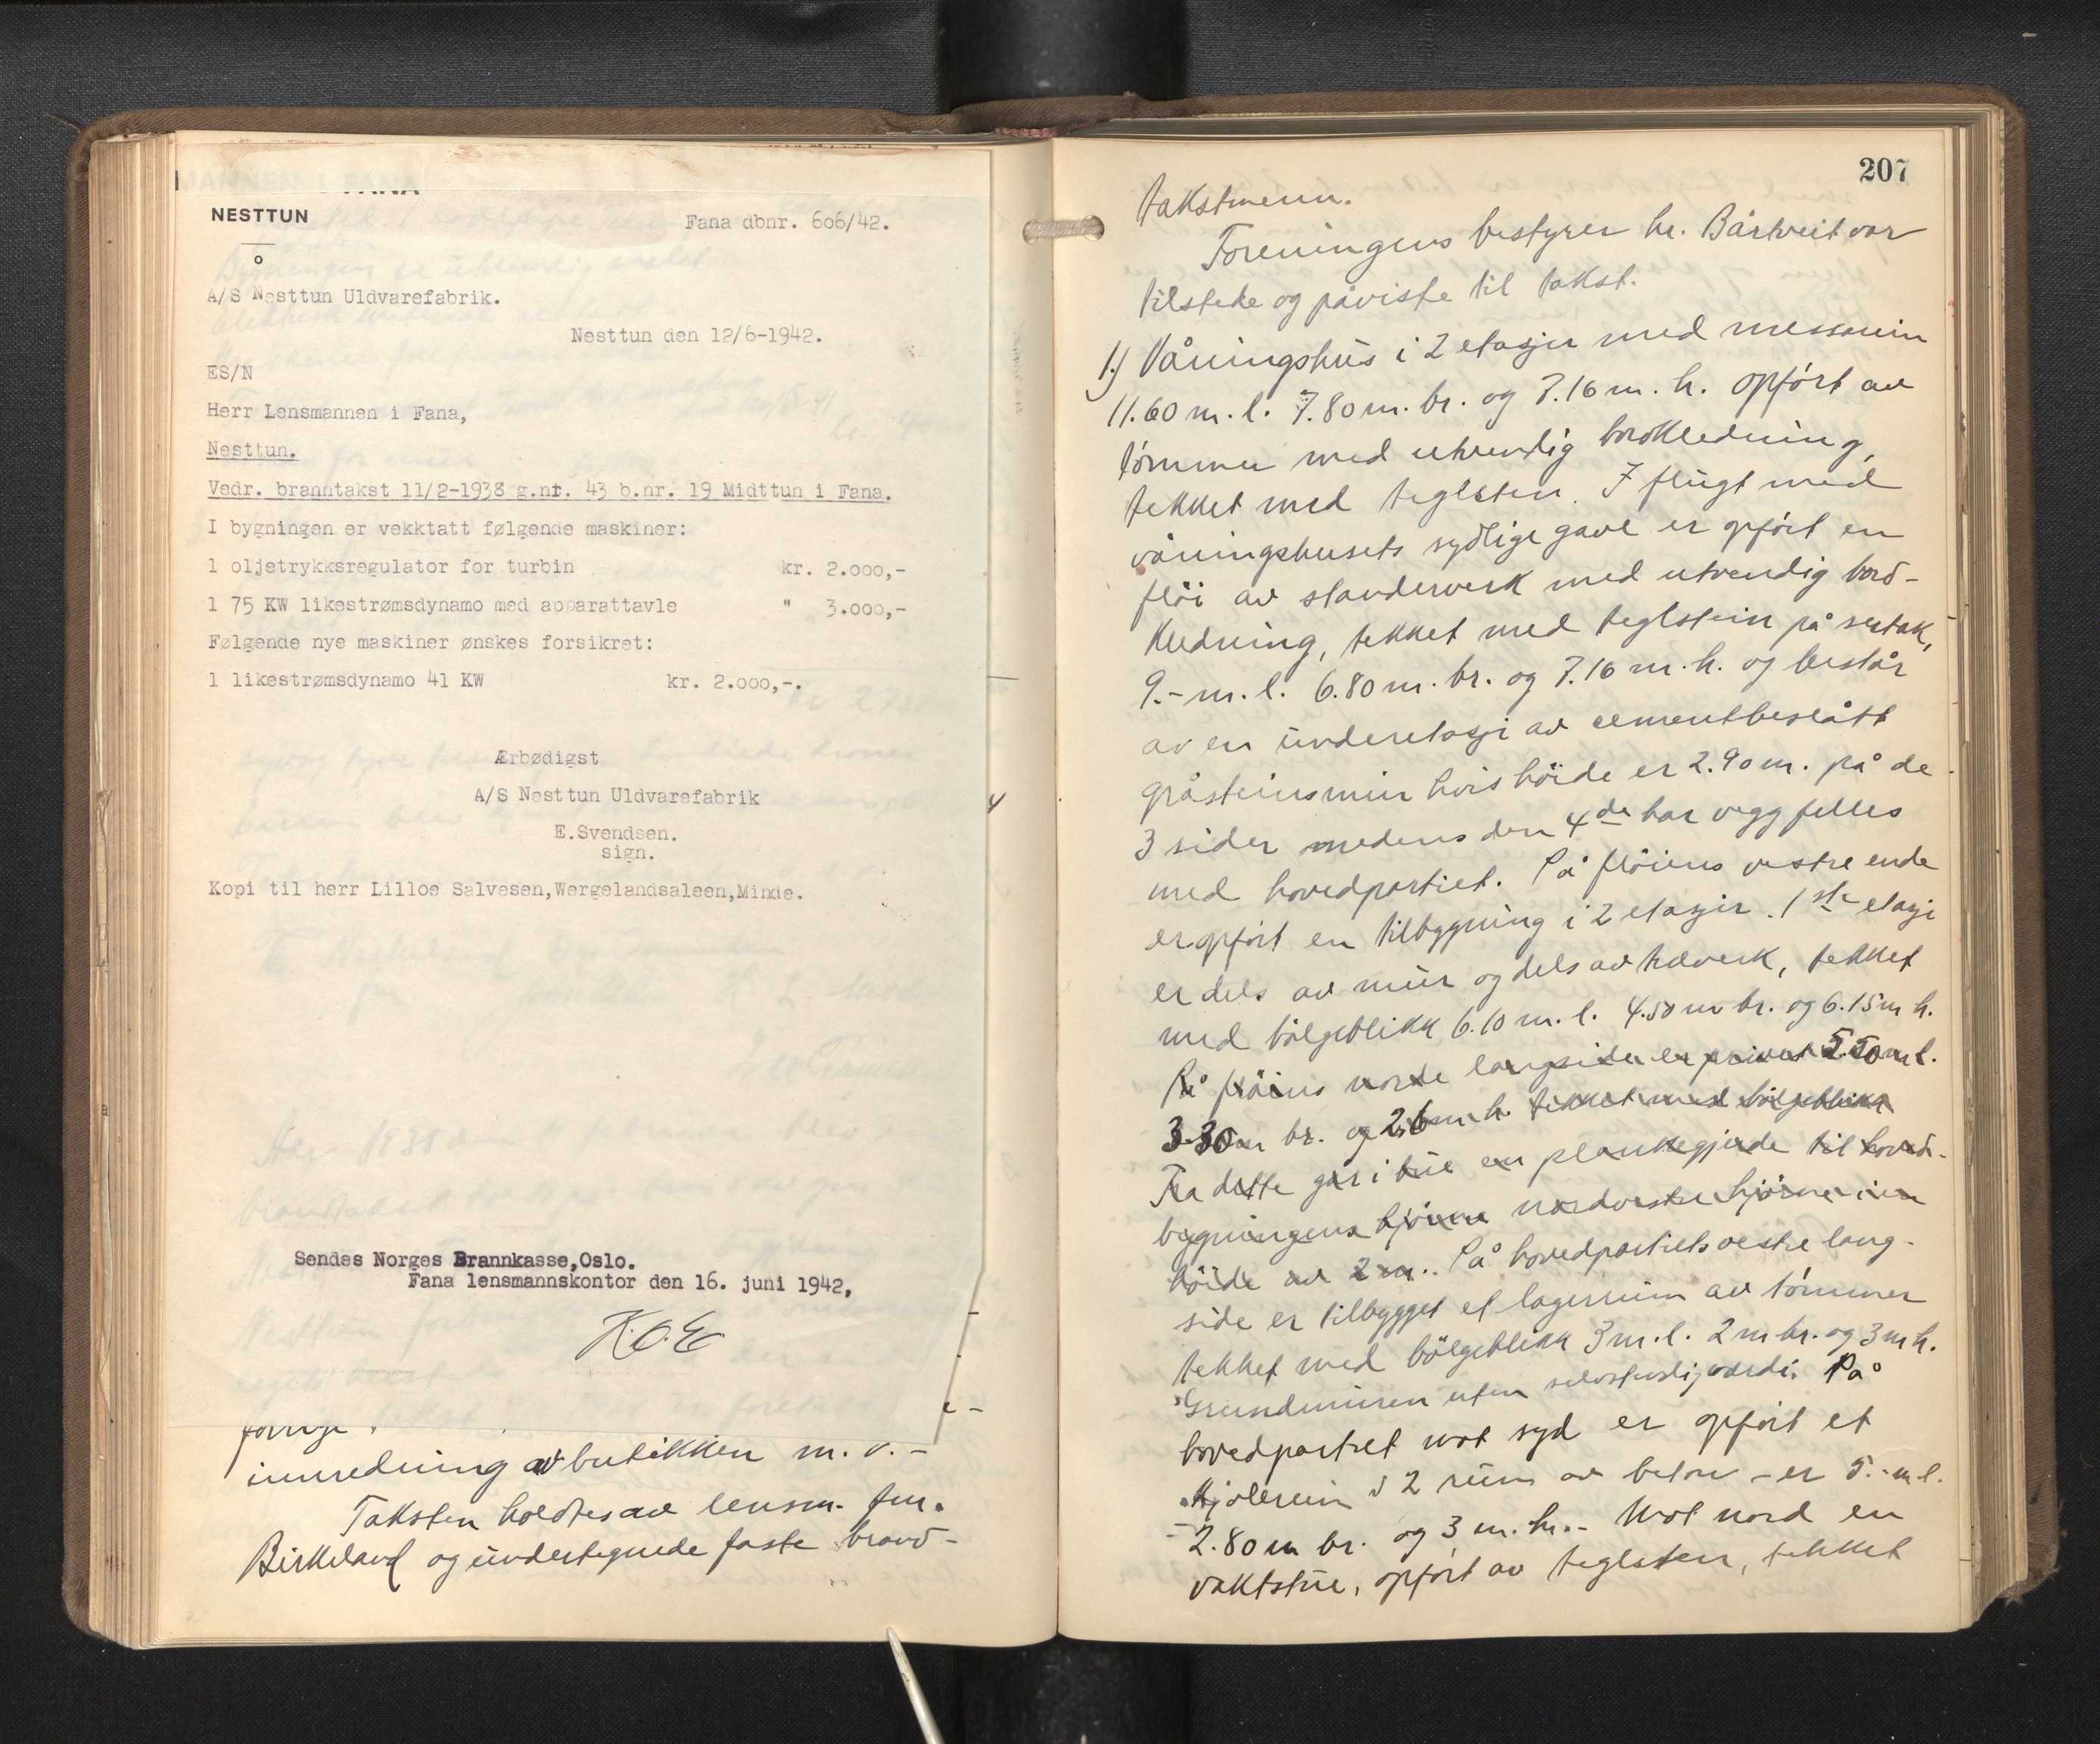 MANNEN I FANA
NESTTUN
Fana dbnr. 606/42.
A/S Nesttun Uldvarefabrik.
Nesttun den 12/6-1942.
ES/N
Herr Lensmannen i Fana,
Nesttun.
Vedr. branntakst 11/2-1938 g.nr. 43 b.nr. 19 Midttun i Fana.
I bygningen er vekktatt følgende maskiner:
1 oljetrykksregulator for turbin kr. 2.000,-
1 75 KW likestrømsdynamo med apparattavle " 3.000,-
Følgende nye maskiner ønskes forsikret:
1 likestrømsdynamo 41 KW kr. 2.000,-.
Ærbødigst
A/S Nesttun Uldvarefabrik
E.Svendsen.
sign.
Kopi til herr Lilloe Salvesen,Wergelandsaleen,Minde.
Sendes Norges Brannkasse,Oslo.
Fana lensmannskontor den 16. juni 1942,
innredning av butikken m. v. -
Taksten holdtes av lensm. fm.
Birkeland og undertegnede faste brand-
207
takstmenn.
Foreningens bestyrer hr. Bårtveit var
tilstede og påviste til takst.
1.) Våningshus i 2 etasjer med messanin
11.60 m. l. 7.80 m. br. og 7.16 m. h. opført av
tømmer med utvendig bordkledning,
tekket med teglsten. I flugt med
våningshusets sydlige gavl er opført en
fløi av standerverk med utvendig bord-
kledning, tekket med teglstein på sutak,
9.- m. l. 6.80 m. br. og 7.16 m. h. og består
av en underetasje av cementbeslått
gråsteinsmur hvis høide er 2.90 m. på de
3 sider medens den 4de har vegg felles
med hovedpartiet. På fløiens vestre ende
er opført en tilbygning i 2 etasjer. 1ste etasje
er dels av mur og dels av treverk, tekket
med bølgeblikk 6.10 m. l. 4.50 m br. og 6.15 m h.
På fløiens norde langside er privet 5.50 m l.
3.30 m br. og 2.6 m h. tekket med bølgeblikk
Fra dette går i bue en plankegjerde til hoved-
bygningens hjørne nordvestre hjørne i en
høide av 2 m.. På hovedpartiets vestre lang-
side er tilbygget et lagerrum av tømmer
tekket med bølgeblikk 3 m. l. 2 m br. og 3 m h.
Grundmuren uten selvstendig værdi. På
hovedpartiet mot syd er opført et
kjølerum i 2 rum av beton - er 5.- m. l.
2.80 m br. og 3 m. h. - Mot nord en
vaktstue, opført av teglsten, tekket